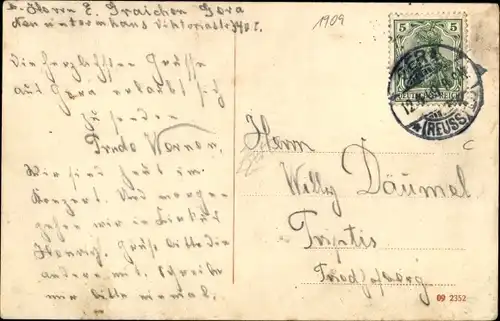 b. Herrn E. Graichen Gera
Neuuntermhaus Viktoriastr. 40 I.
1909
Die herzlichsten Grüsse
aus Gera erlaubt sich
zu senden
Werner.
Wir sind heut im
Konzert. Und morgen
gehen wir in Zirkus
Henrich. Grüß bitte die
andern mit. Schreibe
mir bitte einmal.
5 5
DEUTSCHES REICH
GERA
(REUSS)
Herrn
Willy Däumel
Triptis
09 2352